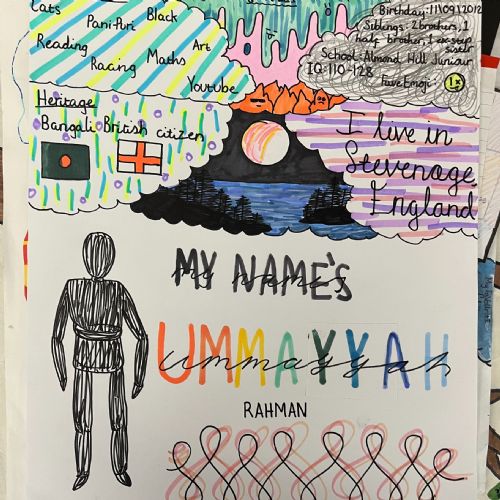 Cats
Pani-Puri
Black
Reading
Art
Maths
Racing
YouTube
Birthday: 11/09/2012
Siblings: 2 brothers, 1
half brother, 1 ex step
sister
School: Almond Hill Juniour
IQ: 110-128
Fave Emoji:
Heritage
Bangali British citizen
I live in
Stevenage,
England
MY NAME'S
my name's
UMMAYYAH
ummayyah
RAHMAN